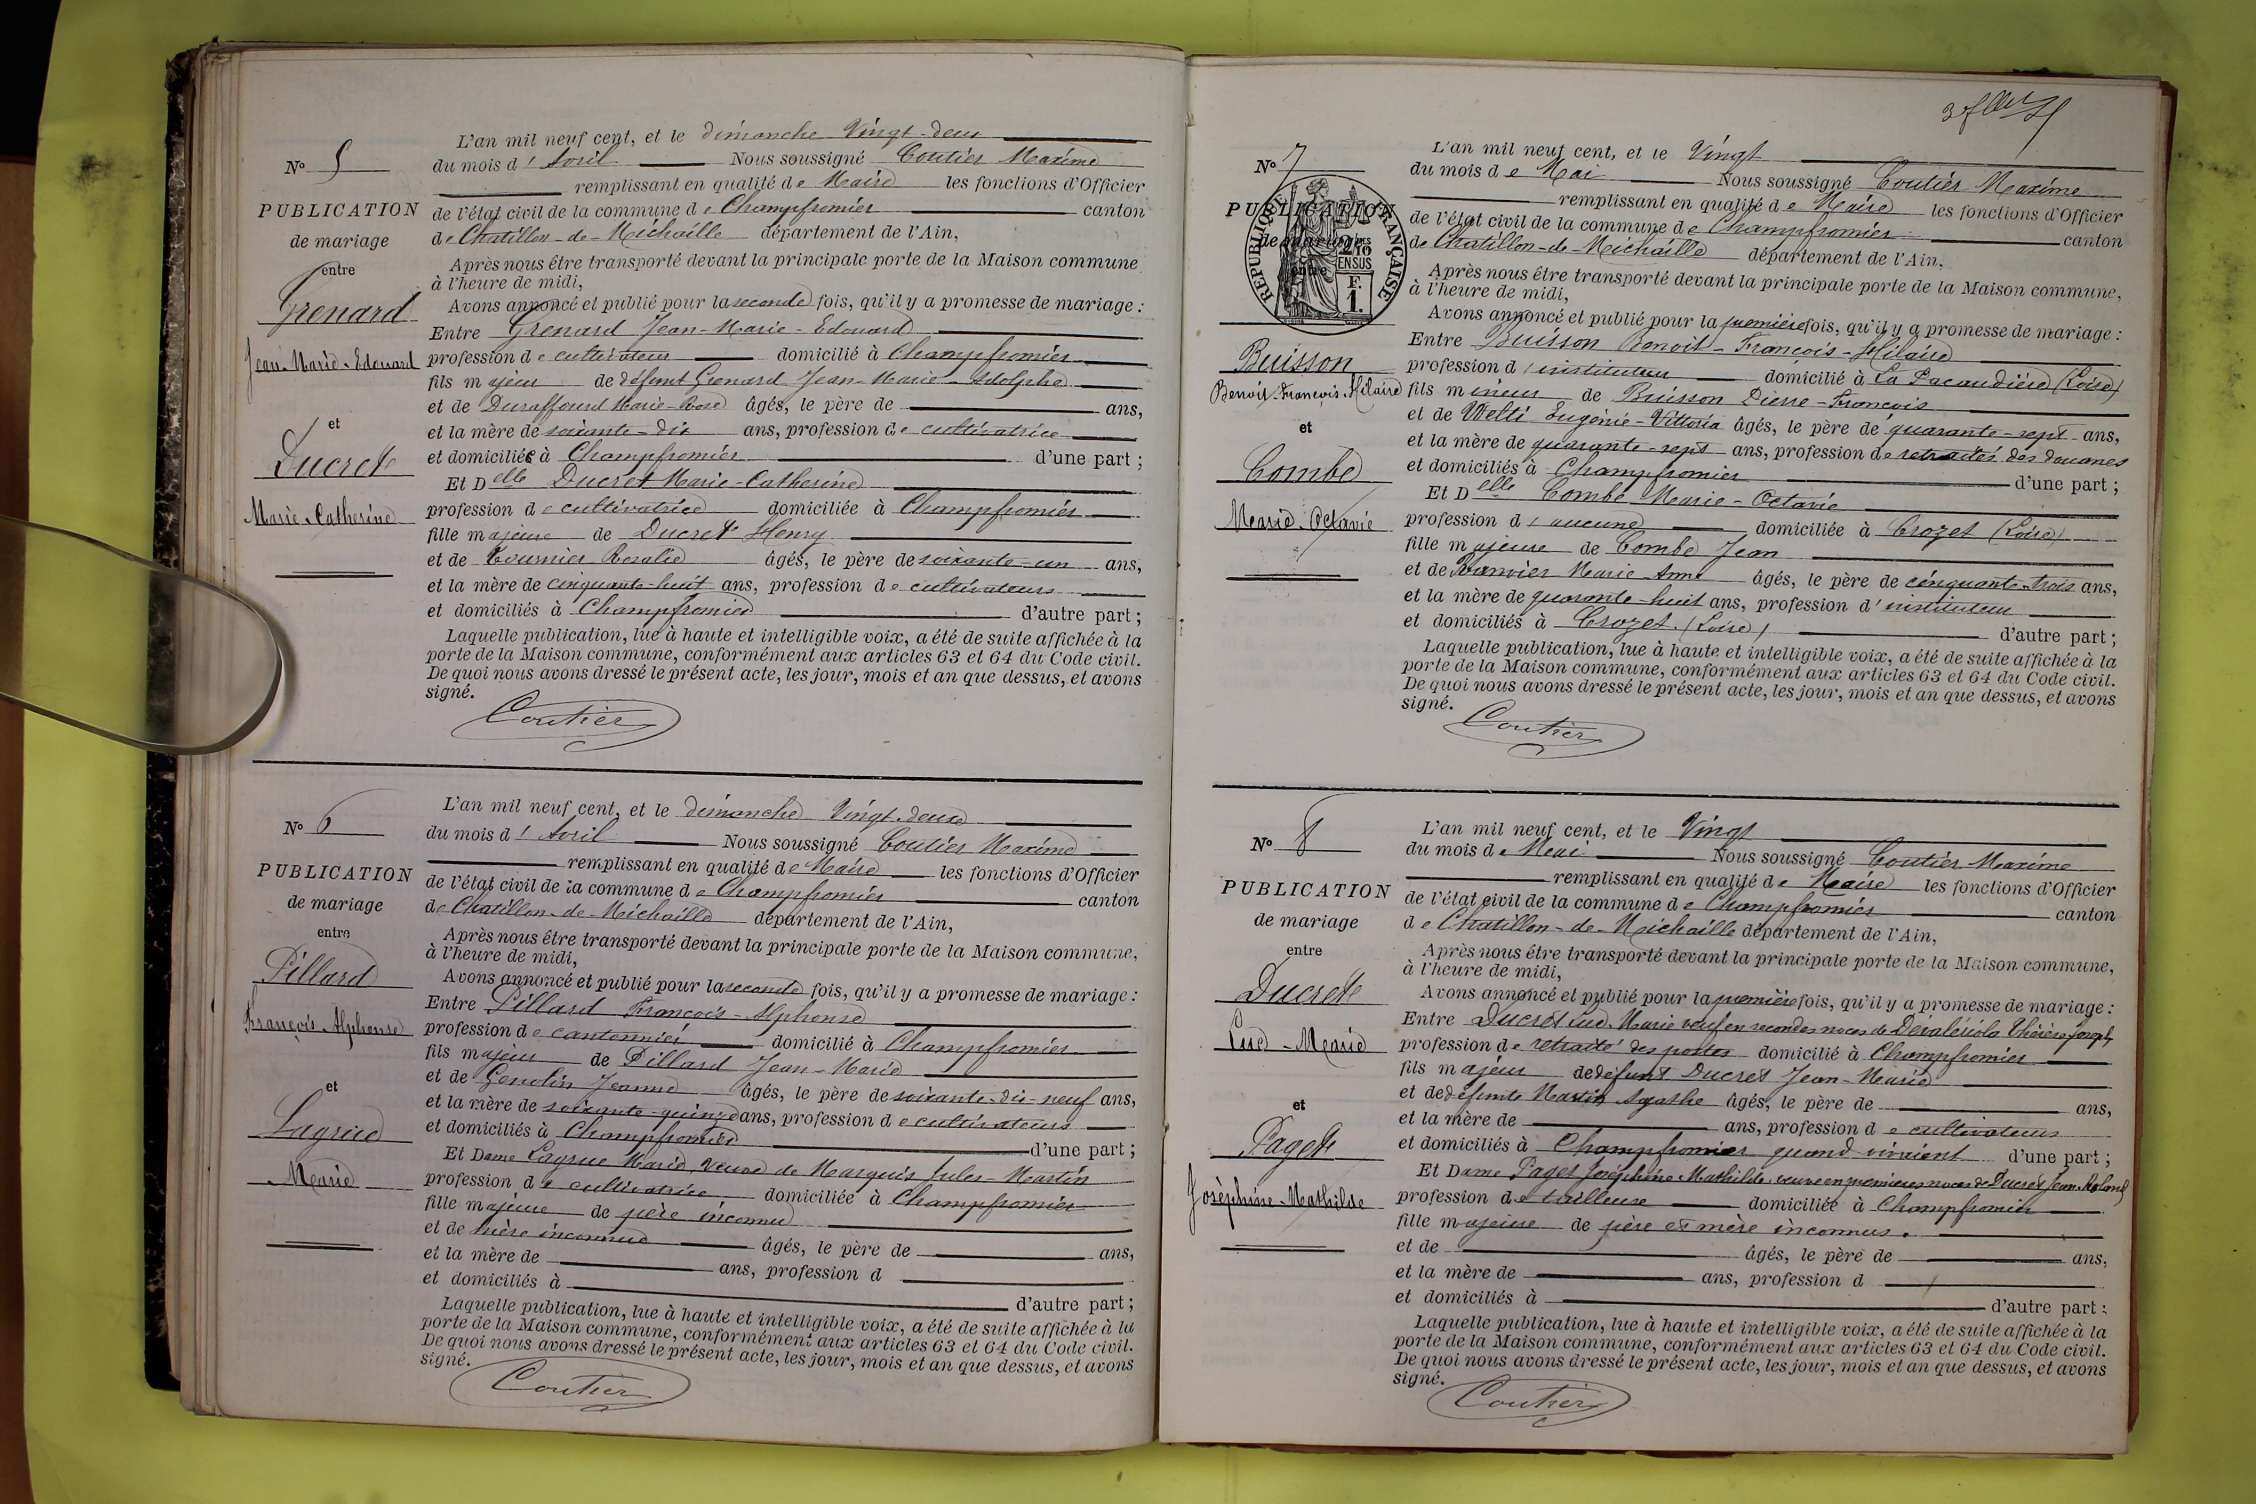 N° 5
PUBLICATION
de mariage
entre
Grenard
Jean-Marie-Edouard
et
Ducret
Marie-Catherine
L'an mil neuf cent, et le dimanche Vingt-deux
du mois d'Avril Nous soussigné Coutier Maxime
remplissant en qualité de Maire les fonctions d'Officier
de l'état civil de la commune de Champfromier canton
de Chatillon-de-Michaille département de l'Ain,
Après nous être transporté devant la principale porte de la Maison commune
à l'heure de midi,
Avons annoncé et publié pour la seconde fois, qu'il y a promesse de mariage :
Entre Grenard Jean-Marie-Edouard
profession de cultivateur domicilié à Champfromier
fils majeur de défunt Grenard Jean-Marie-Adolphe
et de Duraffourd Marie-Rose âgés, le père de ans,
et la mère de soixante-dix ans, profession de cultivatrice
et domiciliée à Champfromier d'une part ;
Et Delle Ducret Marie-Catherine
profession de cultivatrice domiciliée à Champfromier
fille majeure de Ducret Henry
et de Tournier Rosalie âgés, le père de soixante-un ans,
et la mère de cinquante-huit ans, profession de cultivateurs
et domiciliés à Champfromier d'autre part ;
Laquelle publication, lue à haute et intelligible voix, a été de suite affichée à la
porte de la Maison commune, conformément aux articles 63 et 64 du Code civil.
De quoi nous avons dressé le présent acte, les jour, mois et an que dessus, et avons
signé.
Coutier
N° 6
PUBLICATION
de mariage
entre
Pillard
François-Alphonse
et
Lagrue
Marie
L'an mil neuf cent, et le dimanche Vingt-deux
du mois d'Avril Nous soussigné Coutier Maxime
remplissant en qualité de Maire les fonctions d'Officier
de l'état civil de la commune de Champfromier canton
de Chatillon-de-Michaille département de l'Ain,
Après nous être transporté devant la principale porte de la Maison commune,
à l'heure de midi,
Avons annoncé et publié pour la seconde fois, qu'il y a promesse de mariage :
Entre Pillard François-Alphonse
profession de cantonnier domicilié à Champfromier
fils majeur de Pillard Jean-Marie
et de Genolin Jeanne âgés, le père de soixante-dix-neuf ans,
et la mère de soixante-quinze ans, profession de cultivateurs
et domiciliés à Champfromier d'une part ;
Et Dame Lagrue Marie, veuve de Marquis Jules-Martin
profession de cultivatrice, domiciliée à Champfromier
fille majeure de père inconnu
et de mère inconnue âgés, le père de ans,
et la mère de ans, profession d
et domiciliés à d'autre part ;
Laquelle publication, lue à haute et intelligible voix, a été de suite affichée à la
porte de la Maison commune, conformément aux articles 63 et 64 du Code civil.
De quoi nous avons dressé le présent acte, les jour, mois et an que dessus, et avons
signé.
Coutier
N° 7
PUBLICATION
de mariage
entre
RÉPUBLIQUE FRANÇAISE
2/10
EN SUS
F.
1.
Buisson
Benoit-François-Hilaire
et
Combe
Marie-Octavie
L'an mil neuf cent, et le Vingt
du mois de Mai Nous soussigné Coutier Maxime
remplissant en qualité de Maire les fonctions d'Officier
de l'état civil de la commune de Champfromier canton
de Chatillon-de-Michaille département de l'Ain,
Après nous être transporté devant la principale porte de la Maison commune,
à l'heure de midi,
Avons annoncé et publié pour la première fois, qu'il y a promesse de mariage :
Entre Buisson Benoit-François-Hilaire
profession d'instituteur domicilié à La Pacaudière (Loire)
fils mineur de Buisson Pierre-François
et de Welti Eugénie-Vittoria âgés, le père de quarante-sept ans,
et la mère de quarante-sept ans, profession de retraités des douanes
et domiciliés à Champfromier d'une part ;
Et Delle Combe Marie-Octavie
profession d'aucune domiciliée à Crozet (Loire)
fille majeure de Combe Jean
et de Marie-Anne âgés, le père de cinquante-trois ans,
et la mère de quarante-huit ans, profession d'instituteur
et domiciliés à Crozet (Loire) d'autre part ;
Laquelle publication, lue à haute et intelligible voix, a été de suite affichée à la
porte de la Maison commune, conformément aux articles 63 et 64 du Code civil.
De quoi nous avons dressé le présent acte, les jour, mois et an que dessus, et avons
signé.
Coutier
N° 8
PUBLICATION
de mariage
entre
Ducret
Luc-Marie
et
Paget
Joséphine-Mathilde
L'an mil neuf cent, et le Vingt
du mois de Mai Nous soussigné Coutier Maxime
remplissant en qualité de Maire les fonctions d'Officier
de l'état civil de la commune de Champfromier canton
de Chatillon-de-Michaille département de l'Ain,
Après nous être transporté devant la principale porte de la Maison commune,
à l'heure de midi,
Avons annoncé et publié pour la première fois, qu'il y a promesse de mariage :
Entre Ducret Luc-Marie veuf en secondes noces de Thérèse Joseph
profession de retraité des postes domicilié à Champfromier
fils majeur de défunt Ducret Jean-Marie
et de défunte Martin Agathe âgés, le père de ans,
et la mère de ans, profession de cultivateurs
et domiciliés à Champfromier quand vivaient d'une part ;
Et Dame Paget Joséphine-Mathilde, veuve en premières noces de Ducret Jean-Roland
profession de tailleuse domiciliée à Champfromier
fille majeure de père et mère inconnus.
et de âgés, le père de ans,
et la mère de ans, profession d
et domiciliés à d'autre part ;
Laquelle publication, lue à haute et intelligible voix, a été de suite affichée à la
porte de la Maison commune, conformément aux articles 63 et 64 du Code civil.
De quoi nous avons dressé le présent acte, les jour, mois et an que dessus, et avons
signé.
Coutier